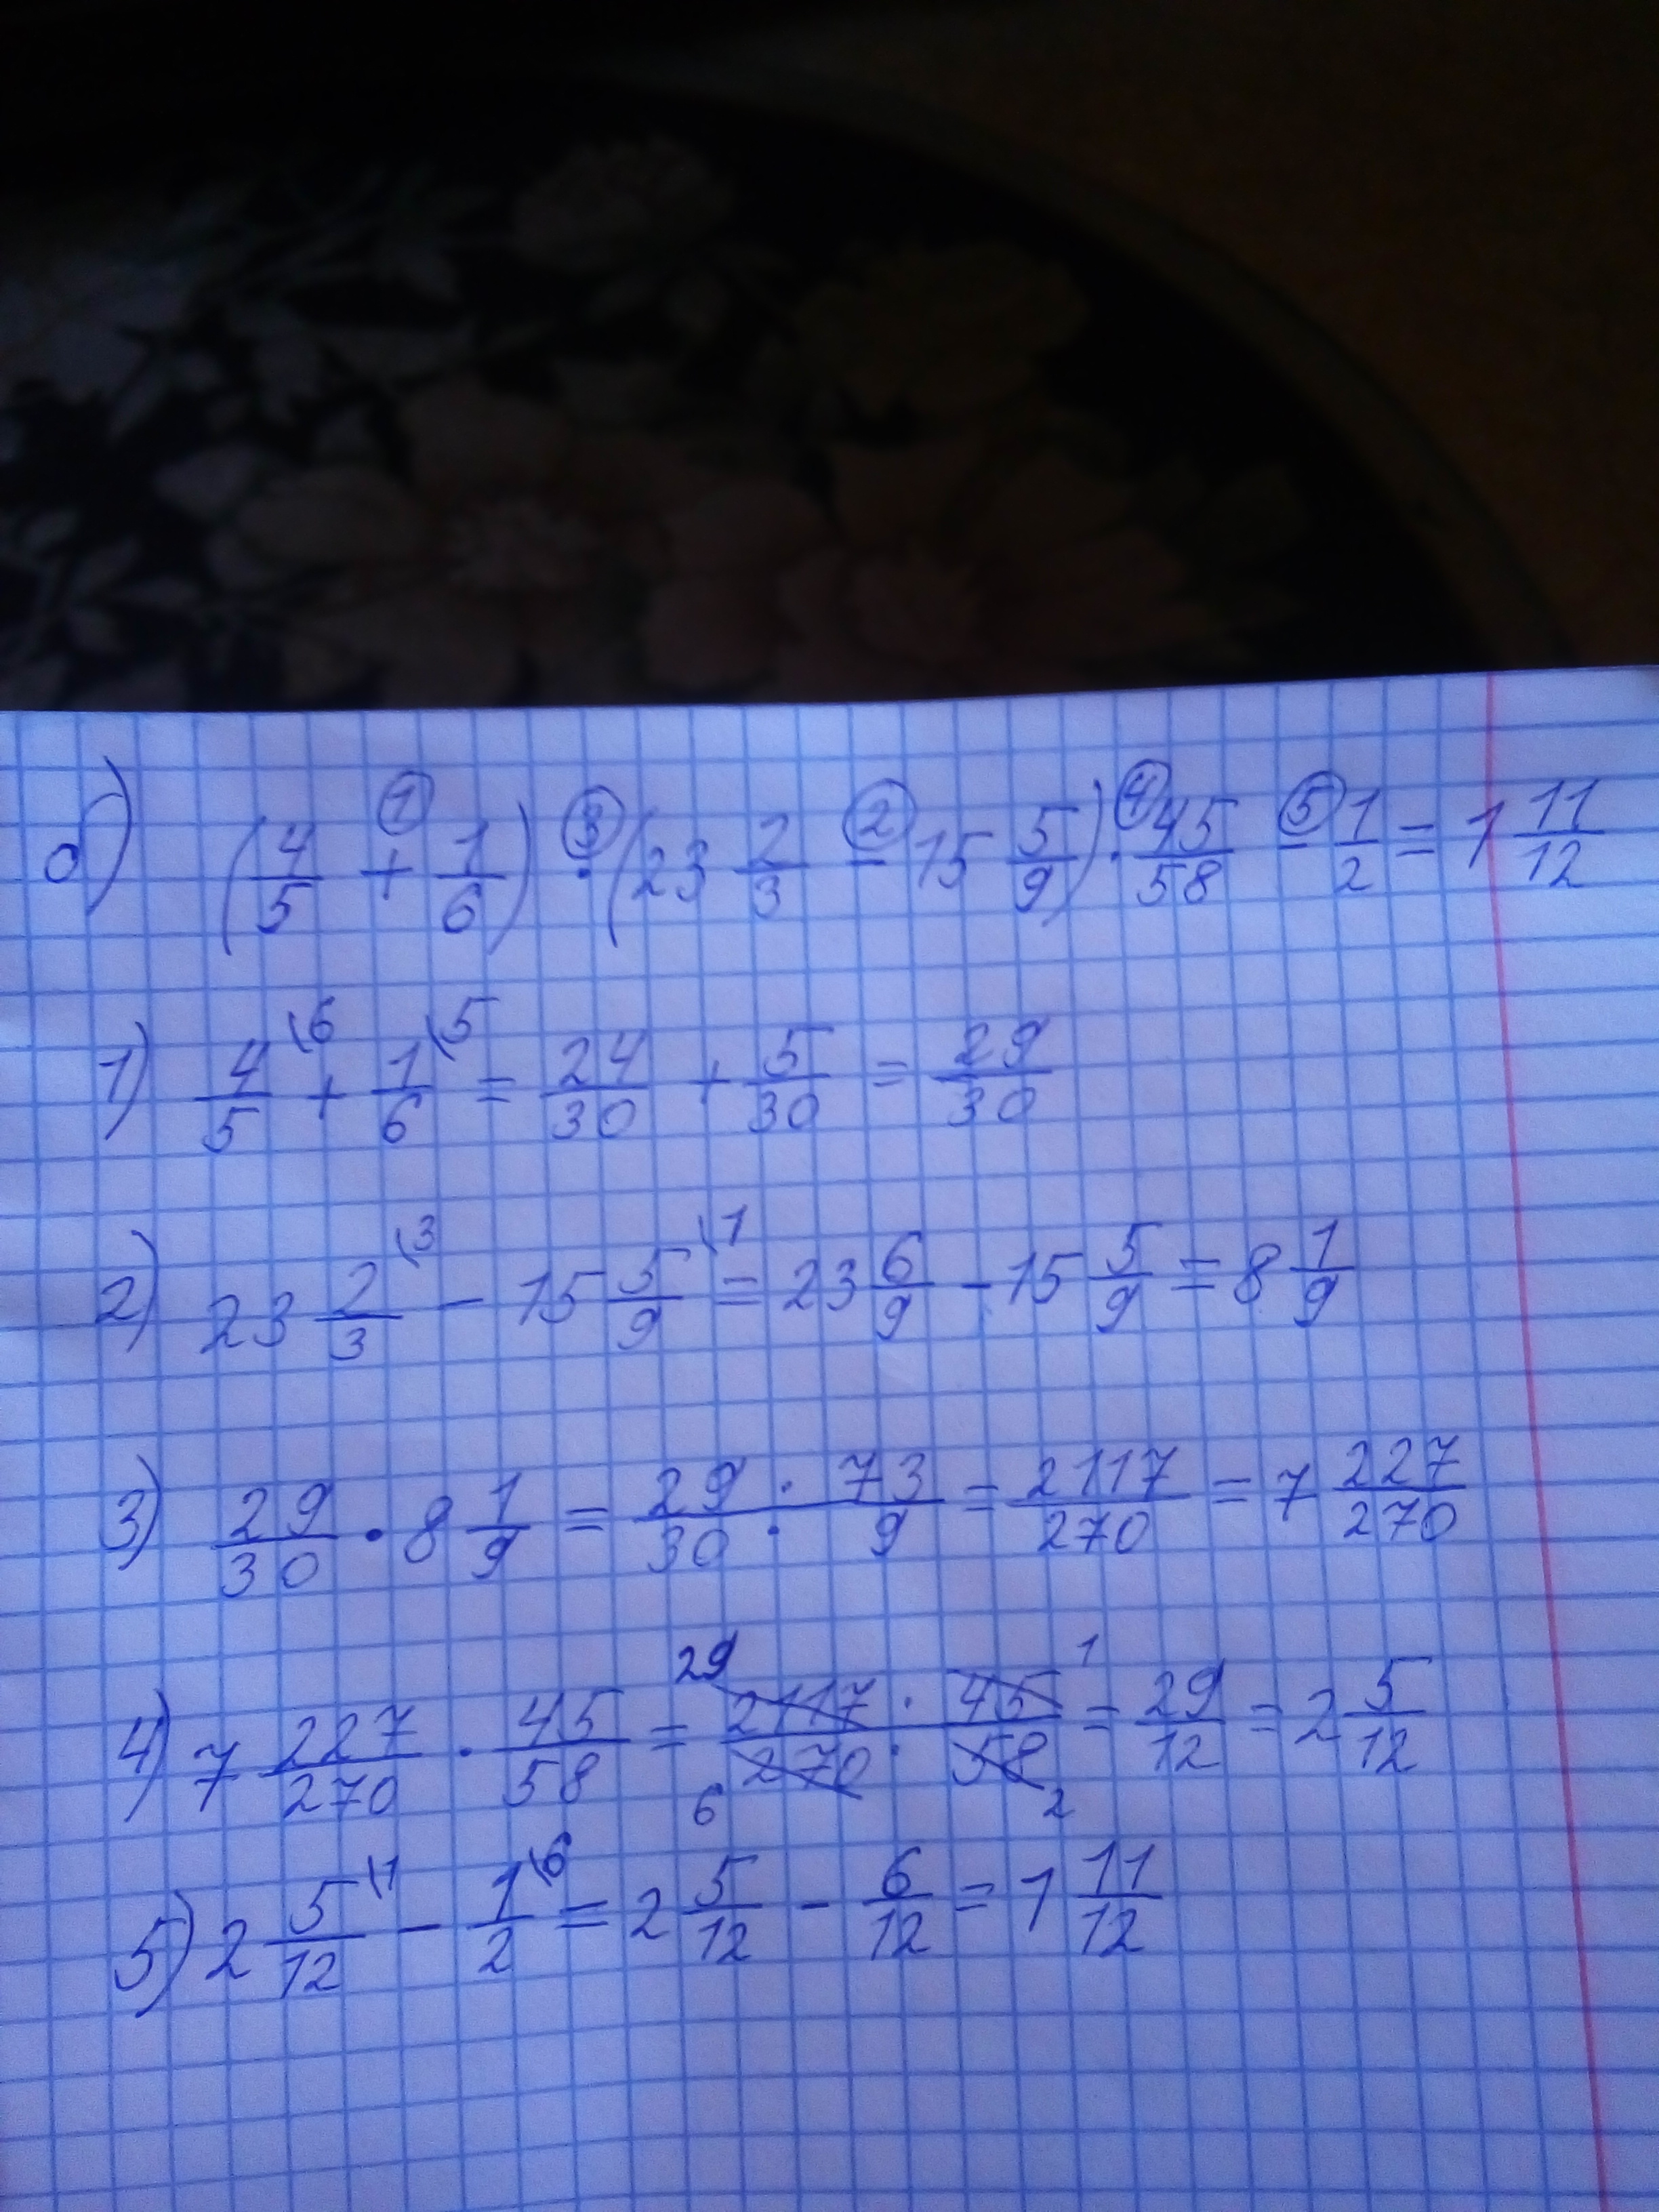 б) (4/5 +① 1/6) ·③ (23 2/3 −② 15 5/9) ·④ 45/58 −⑤ 1/2 = 1 11/12
1) 4/5 \6 + 1/6 \5 = 24/30 + 5/30 = 29/30
2) 23 2/3 \3 − 15 5/9 \1 = 23 6/9 − 15 5/9 = 8 1/9
3) 29/30 · 8 1/9 = 29 · 73 / 30 · 9 = 2117/270 = 7 227/270
4) 7 227/270 · 45/58 = 29 2117 · 45 1 / 6 270 · 58 2 = 29/12 = 2 5/12
5) 2 5/12 \1 − 1/2 \6 = 2 5/12 − 6/12 = 1 11/12